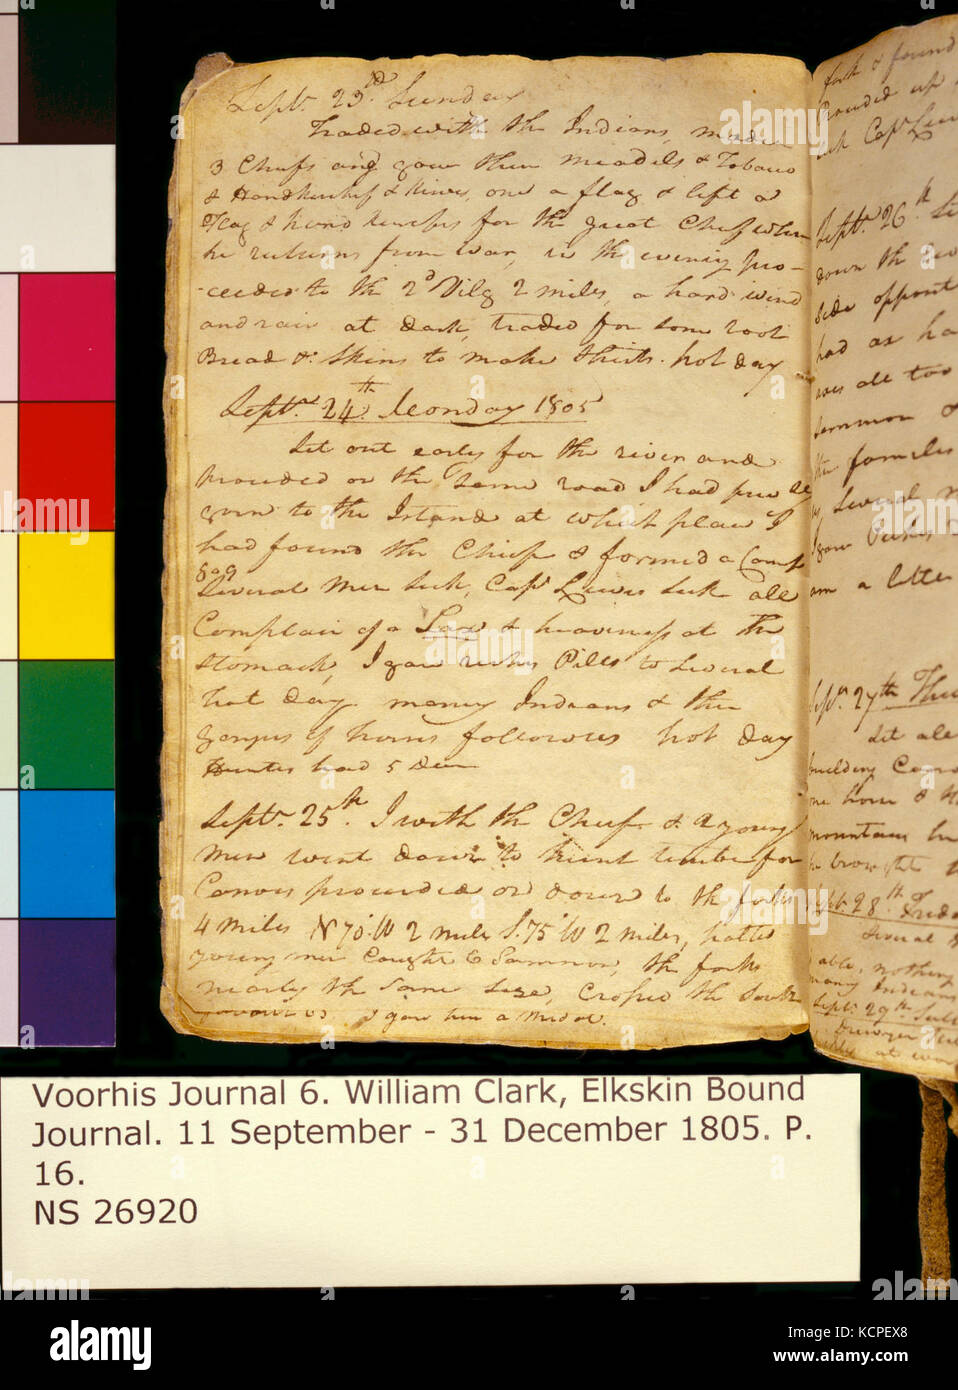 Septr. 23rd Sunday
Traded with the Indians, made
3 Chiefs and gave them meadels & Tobaco
& Handkerchif & Knives, one a flag & left a
Flag & hand kerches for the great Chief when
he returns from war, in the evening pro-
ceeded to the 2d Vilg 2 miles, a hard wind
and rain at dark, traded for Some root
Bread & Skins to make Shirts. hot day
Septr. 24th. Monday 1805
Set out early for the river and
proceeded on the Same road I had previ
to the Island at which place I
had found the Chief & formed a Camp
Several 809
Men Sick, Capt Lewis Sick all
Complain of a Lax & heaviness at the
Stomack, I gave rushes Pills to Several
hot day many Indians & thier
gangues of horses follow hot day
Hunter had 5 Deer
Septr. 25th. I with the Chief & 2 young
men went down to hunt timber for
Canoes proceeded on down to the forks
4 miles N 70° W 2 miles S. 75° W 2 miles, halted
young men Cought 6 Sammon, the forks
nearly the Same Size, Crossed the South
I gave him a Medal.
fork & found
Proceed up
Capt Lew
Septr. 26th
down the
Side opposit
had
all
Sammon
families
Several
I gave Pukes
am a little
Septr. 27th Thu
Set all
building Cano
one horse &
mountain
brought
Septr. 28th. Frid
Several
able, nothing
many Indians
Septr. 29th.
Drewyer
at
Voorhis Journal 6. William Clark, Elkskin Bound
Journal. 11 September - 31 December 1805. P.
16.
NS 26920
alamy
Image ID: KCPEX8
www.alamy.com